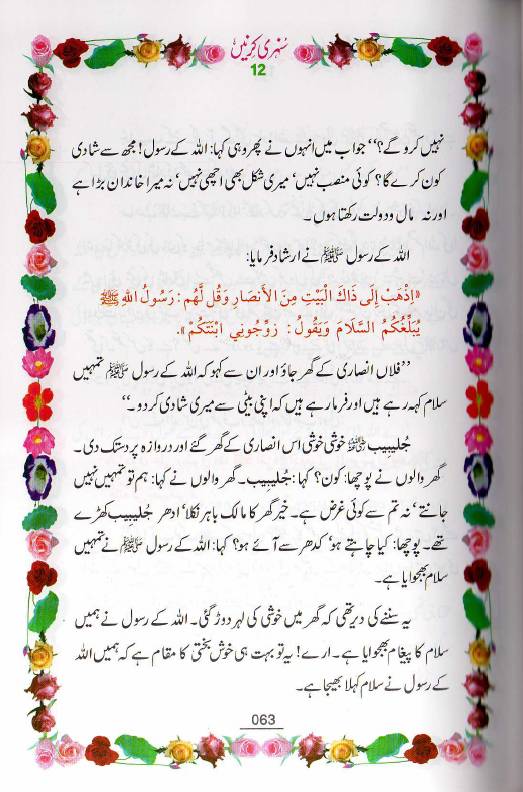 سنہری کرنیں
12
نہیں کرو گے؟‘‘ جواب میں انہوں نے پھر وہی کہا: اللہ کے رسول! مجھ سے شادی
کون کرے گا؟ کوئی منصب نہیں‘ میری شکل بھی اچھی نہیں‘ نہ میرا خاندان بڑا ہے
اور نہ مال و دولت رکھتا ہوں۔
اللہ کے رسول ﷺ نے ارشاد فرمایا:
«اِذْهَبْ إِلَى ذَاكَ الْبَيْتِ مِنَ الأَنْصَارِ وَقُل لَّهُم: رَسُولُ الله ﷺ
يُبَلِّغُكُمُ السَّلَامَ وَيَقُولُ: زَوِّجُونِي ابْنَتَكُمْ».
’’فلاں انصاری کے گھر جاؤ اور ان سے کہو کہ اللہ کے رسول ﷺ تمہیں
سلام کہہ رہے ہیں اور فرما رہے ہیں کہ اپنی بیٹی سے میری شادی کر دو۔‘‘
جُلیبیب رضی اللہ عنہ خوشی خوشی اس انصاری کے گھر گئے اور دروازہ پر دستک دی۔
گھر والوں نے پوچھا: کون؟ کہا: جُلیبیب۔ گھر والوں نے کہا: ہم تو تمہیں نہیں
جانتے‘ نہ تم سے کوئی غرض ہے۔ خیر گھر کا مالک باہر نکلا‘ ادھر جُلیبیب کھڑے
تھے۔ پوچھا: کیا چاہتے ہو‘ کدھر سے آئے ہو؟ کہا: اللہ کے رسول ﷺ نے تمہیں
سلام بھجوایا ہے۔
یہ سننے کی دیر تھی کہ گھر میں خوشی کی لہر دوڑ گئی۔ اللہ کے رسول نے ہمیں
سلام کا پیغام بھجوایا ہے۔ ارے! یہ تو بہت ہی خوش بختی کا مقام ہے کہ ہمیں اللہ
کے رسول نے سلام کہلا بھیجا ہے۔
063